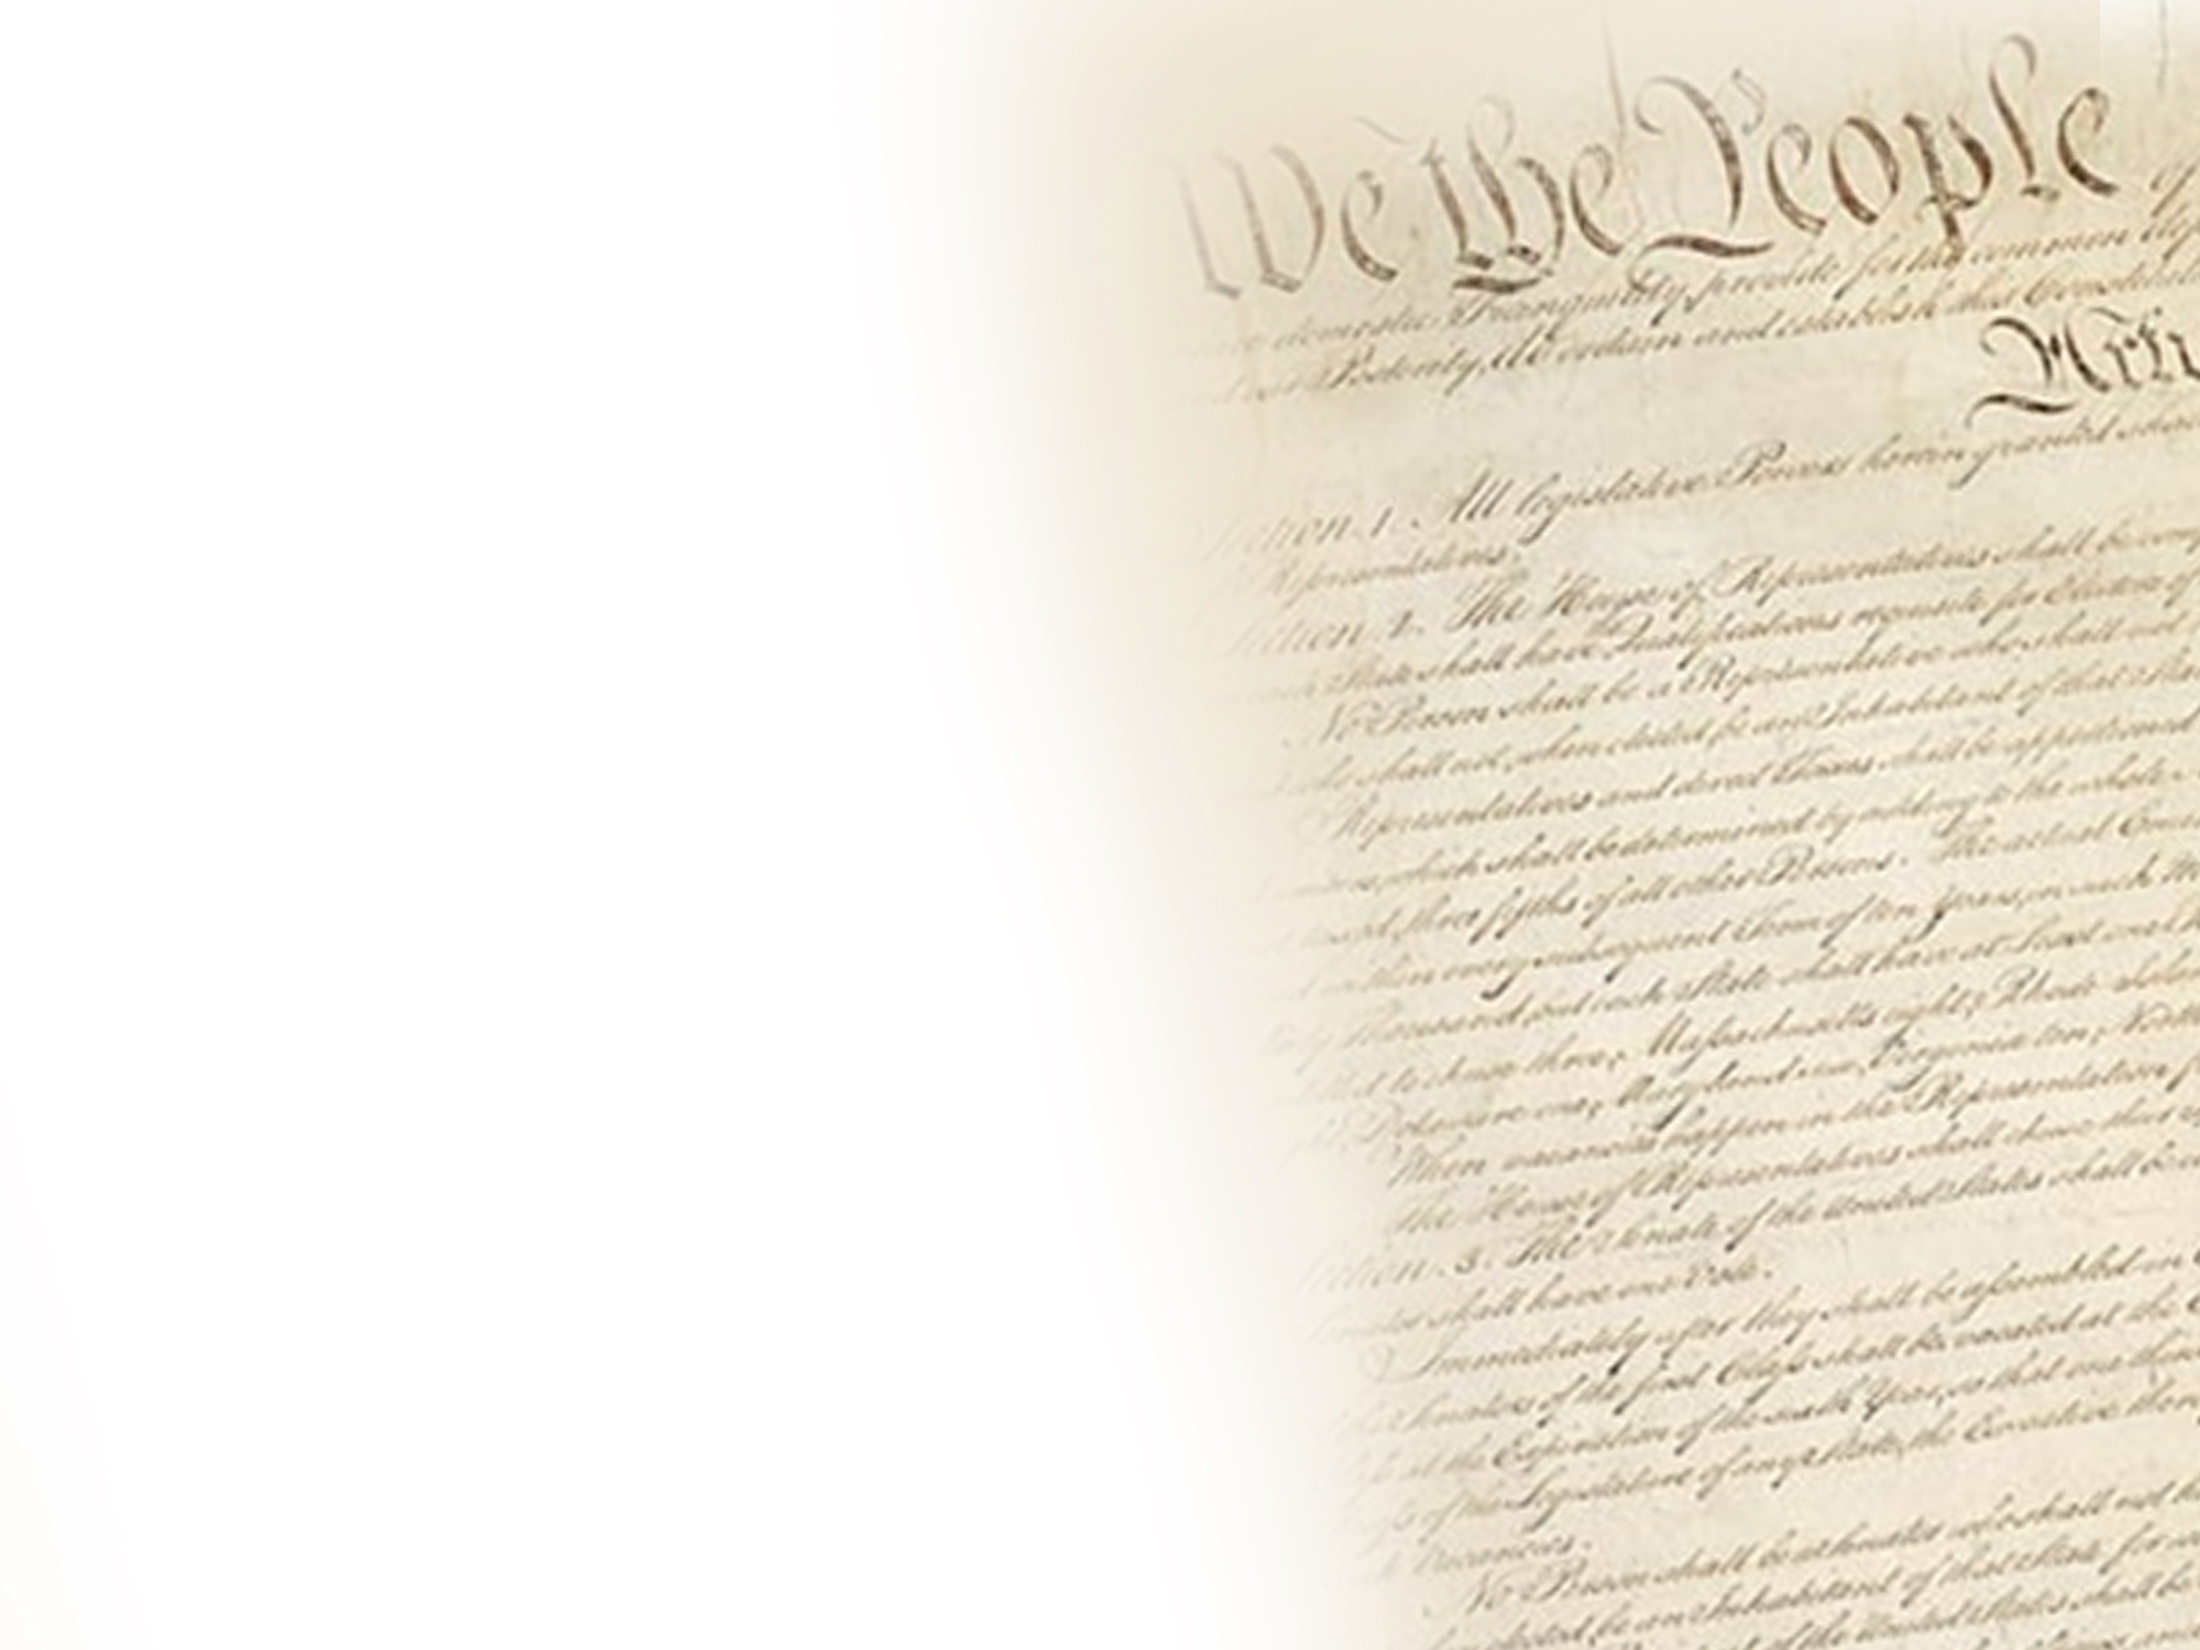 We the People of
domestic Tranquility, provide for the common
Posterity, do ordain and establish this
Arti
Section. 1. All legislative Powers herein granted
Representatives.
Section. 2. The House of Representatives shall be
State shall have Qualifications requisite for Electors of
No Person shall be a Representative who shall not
shall not, when elected, be an Inhabitant of that
Representatives and direct Taxes shall be apportioned
which shall be determined by adding to the whole
three fifths of all other Persons. The actual
within every subsequent Term of ten Years, in such
thousand, but each State shall have at Least one
to chuse three, Massachusetts eight, Rhode
Delaware one, Maryland six, Virginia ten, North
When vacancies happen in the Representation
The House of Representatives shall chuse their
Section. 3. The Senate of the United States shall be
shall have one Vote.
Immediately after they shall be assembled in
Senators of the first Class shall be vacated at the
at the Expiration of the sixth Year, so that one
of the Legislature of any State, the Executive
Vacancies.
No Person shall be a Senator who shall not
elected, be an Inhabitant of that State for
of the United States shall be